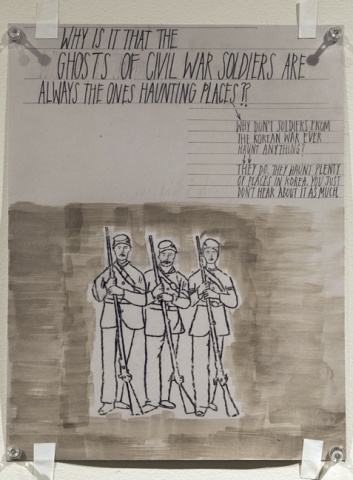 WHY IS IT THAT THE
GHOSTS OF CIVIL WAR SOLDIERS ARE
ALWAYS THE ONES HAUNTING PLACES??
WHY DON'T SOLDIERS FROM
THE KOREAN WAR EVER
HAUNT ANYTHING?
THEY DO. THEY HAUNT PLENTY
OF PLACES IN KOREA. YOU JUST
DON'T HEAR ABOUT IT AS MUCH.